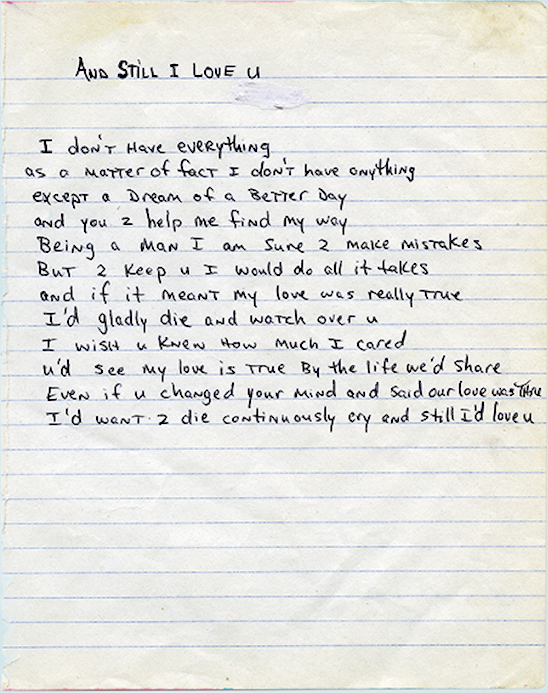 AND STILL I LOVE U
I don't Have everything
as a matter of fact I don't have anything
except a Dream of a Better Day
and you 2 help me find my way
Being a man I am sure 2 make mistakes
But 2 keep u I would do all it takes
and if it meant my love was really true
I'd gladly die and watch over u
I wish u knew How much I cared
u'd see my love is true By the life we'd share
Even if u changed your mind and said our love was thru
I'd want 2 die continuously cry and still I'd love u